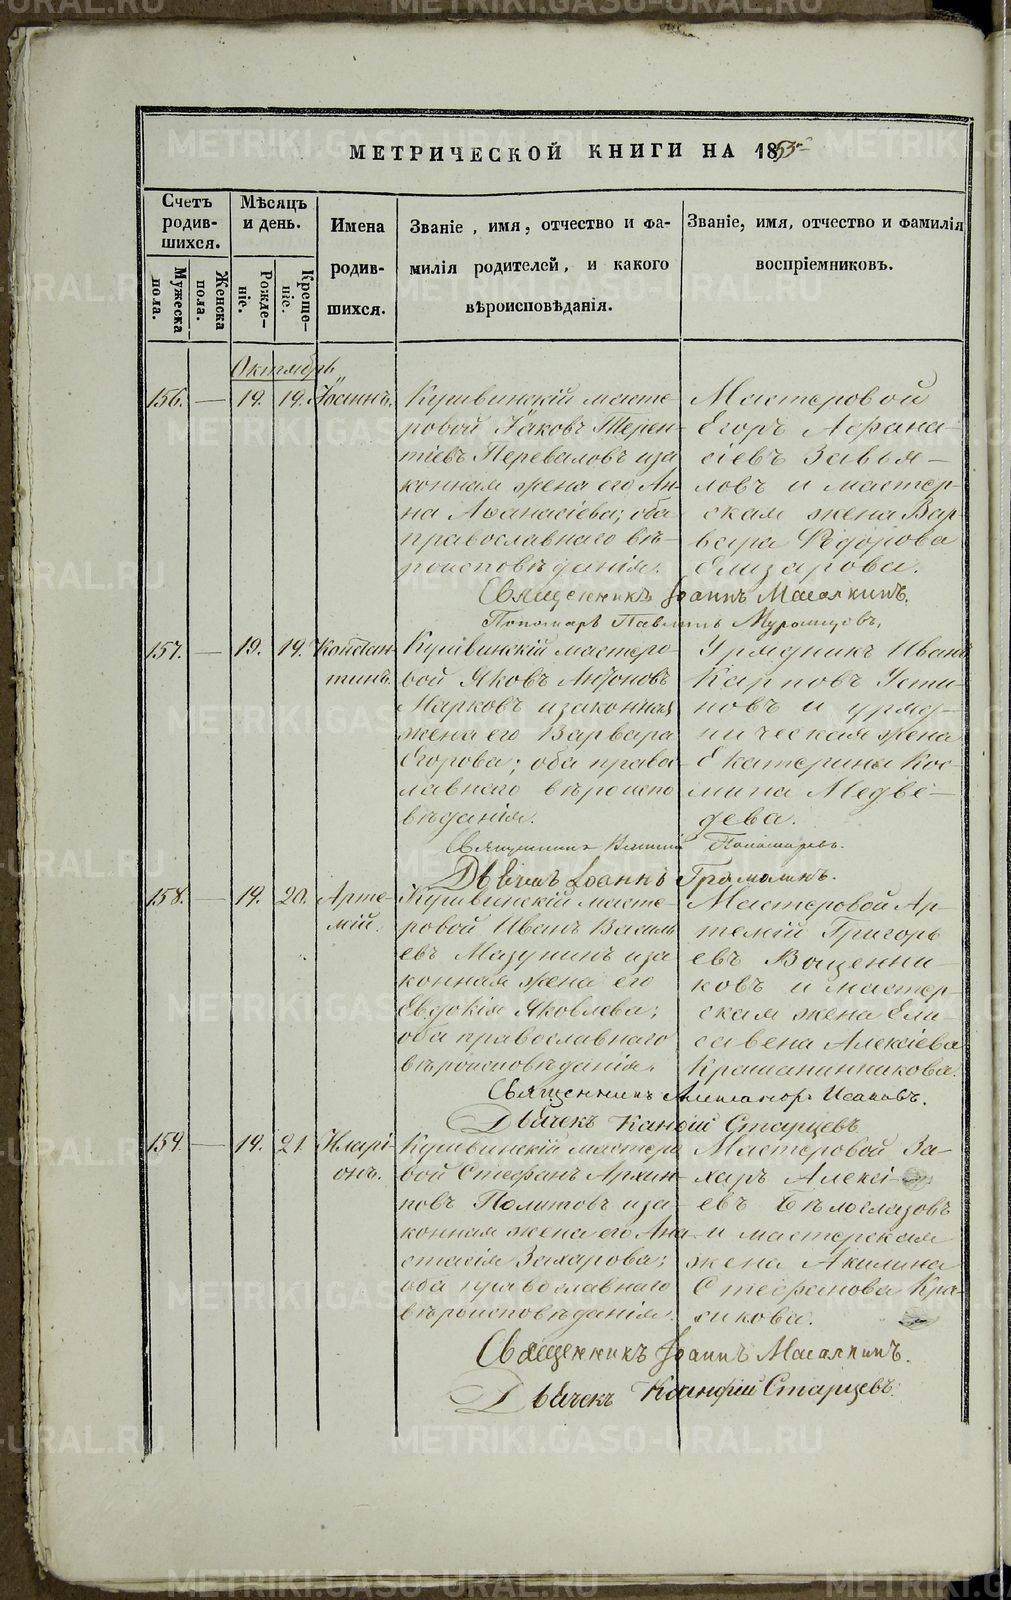 МЕТРИЧЕСКОЙ КНИГИ НА 1853.
Счетъ родившихся.
Мужеска пола.
Женска пола.
Мѣсяцъ и день.
Рожденіе.
Крещеніе.
Имена родившихся.
Званіе, имя, отчество и фамилія родителей, и какого вѣроисповѣданія.
Званіе, имя, отчество и фамилія воспріемниковъ.
Октябрь
156. — 19. 19.
Кушвинскій мастеровой Іаковъ Терентіевъ Переваловъ и законная жена его Анна Аѳанасіева; оба православнаго вѣроисповѣданія.
Мастеровой Егоръ Афанасіевъ Завьяловъ и мастерская жена Варвара Ѳедорова Елизарова.
Священникъ Іоаннъ Масалкинъ.
Пономарь Павлинъ Муромцовъ.
157. — 19. 19. Константинъ.
Кушвинскій мастеровой Яковъ Антоновъ Марковъ и законная жена его Варвара Егорова; оба православнаго вѣроисповѣданія.
Урядникъ Иванъ Карповъ Устиновъ и урядническая жена Екатерина Космина Медвѣдева.
Священникъ Пономаревъ.
Дьячекъ Іоаннъ Грамолинъ.
158. — 19. 20. Артемій.
Кушвинскій мастеровой Иванъ Васильевъ Мазунинъ и законная жена его Евдокія Яковлева; оба православнаго вѣроисповѣданія.
Мастеровой Артемій Григорьевъ Вощенниковъ и мастерская жена Елисавена Алексіева Крашанинникова.
Священникъ Александръ Исаковъ.
Дьячекъ Старцевъ
159. — 19. 21 Иларіонъ.
Кушвинскій мастеровой Стефанъ Архиповъ Политовъ и законная жена его Анастасія Захарова; оба православнаго вѣроисповѣданія.
Мастеровой Захаръ Алексіевъ Бѣлоглазовъ и мастерская жена Акилина Стефанова Красикова.
Священникъ Іоаннъ Масалкинъ.
Дьячекъ Старцевъ.
METRIKI.GASO-URAL.RU